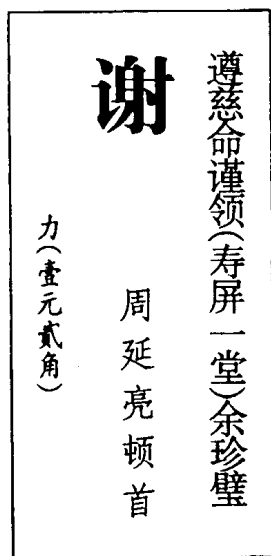 遵慈命谨领(寿屏一堂)余珍璧
谢
周延亮顿首
力(壹元贰角)